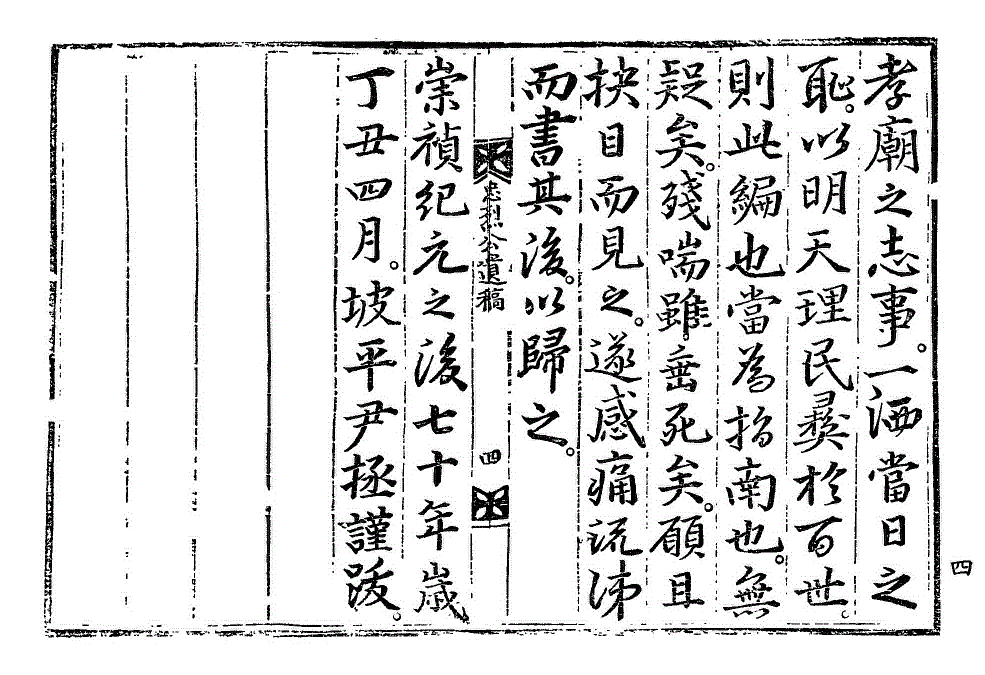 孝廟之志事。一洒當日之
恥。以明天理民彝於百世。
則此編也當為指南也。無
疑矣。殘喘雖垂死矣。願且
抉目而見之。遂感痛流涕
而書其後。以歸之。
忠烈公遺稿 四
崇禎紀元之後七十年歲
丁丑四月。坡平尹拯謹跋。
四